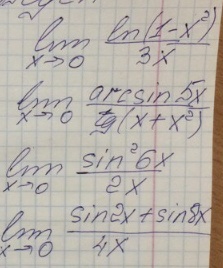 lim x→0 ln(1-x²)/3x
lim x→0 arcsin 5x/tg(x+x²)
lim x→0 sin²6x/2x
lim x→0 sin2x+sin8x/4x